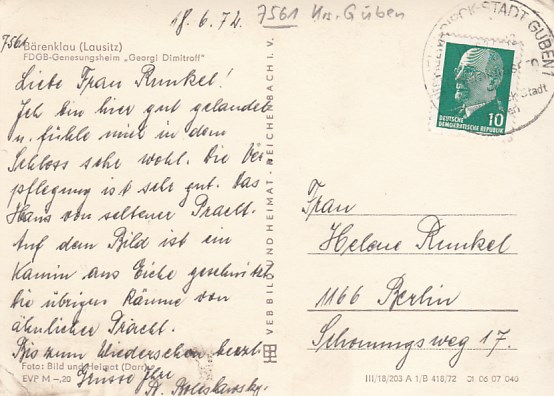 18.6.72 7561 Krs. Guben
7561
Bärenklau (Lausitz)
FDGB-Genesungsheim „Georgi Dimitroff"
Liebe Frau Runkel!
Ich bin hier gut gelandet
u. fühle mich in dem
Schloss sehr wohl. Die Ver
pflegung ist sehr gut. Das
Haus von seltener Pracht.
Auf dem Bild ist ein
Kamin aus Eiche geschnitzt
Die übrigen Räume von
ähnlicher Pracht.
Bis zum Wiedersehen herzl.
Grüsse Ihre
Foto: Bild und Heimat (Darr)
EVP M –,20
VEB BILD UND HEIMAT · REICHENBACH I. V.
PIECK-STADT GUBEN
DEUTSCHE
DEMOKRATISCHE REPUBLIK
10
Frau
Helene Runkel
1166 Berlin
Schonungsweg 17.
III/18/203 A 1/B 418/72 01 06 07 040